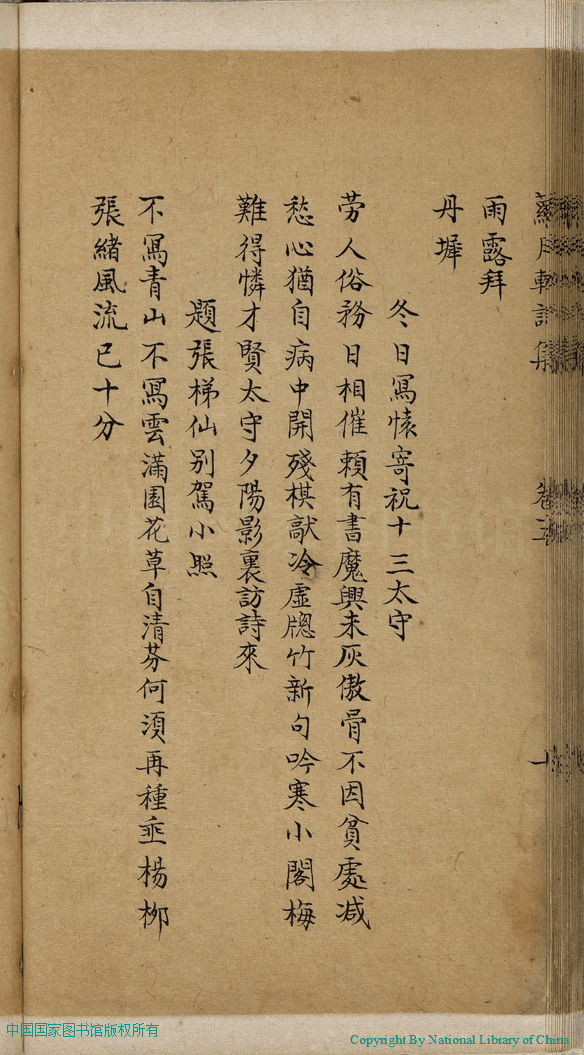 雨露拜
丹墀
冬日寫懐寄祝十三太守
劳人俗務日相催頼有書魔興未灰傲骨不因貧處减
愁心猶自病中開殘棋敲冷虛牕竹新句吟寒小閣梅
難得憐才賢太守夕陽影裏訪詩來
題張梯仙别駕小照
不寫青山不寫雲滿園花草自清芬何須再種垂楊柳
張緒風流已十分
中国国家图书馆版权所有
Copyright By National Library of China